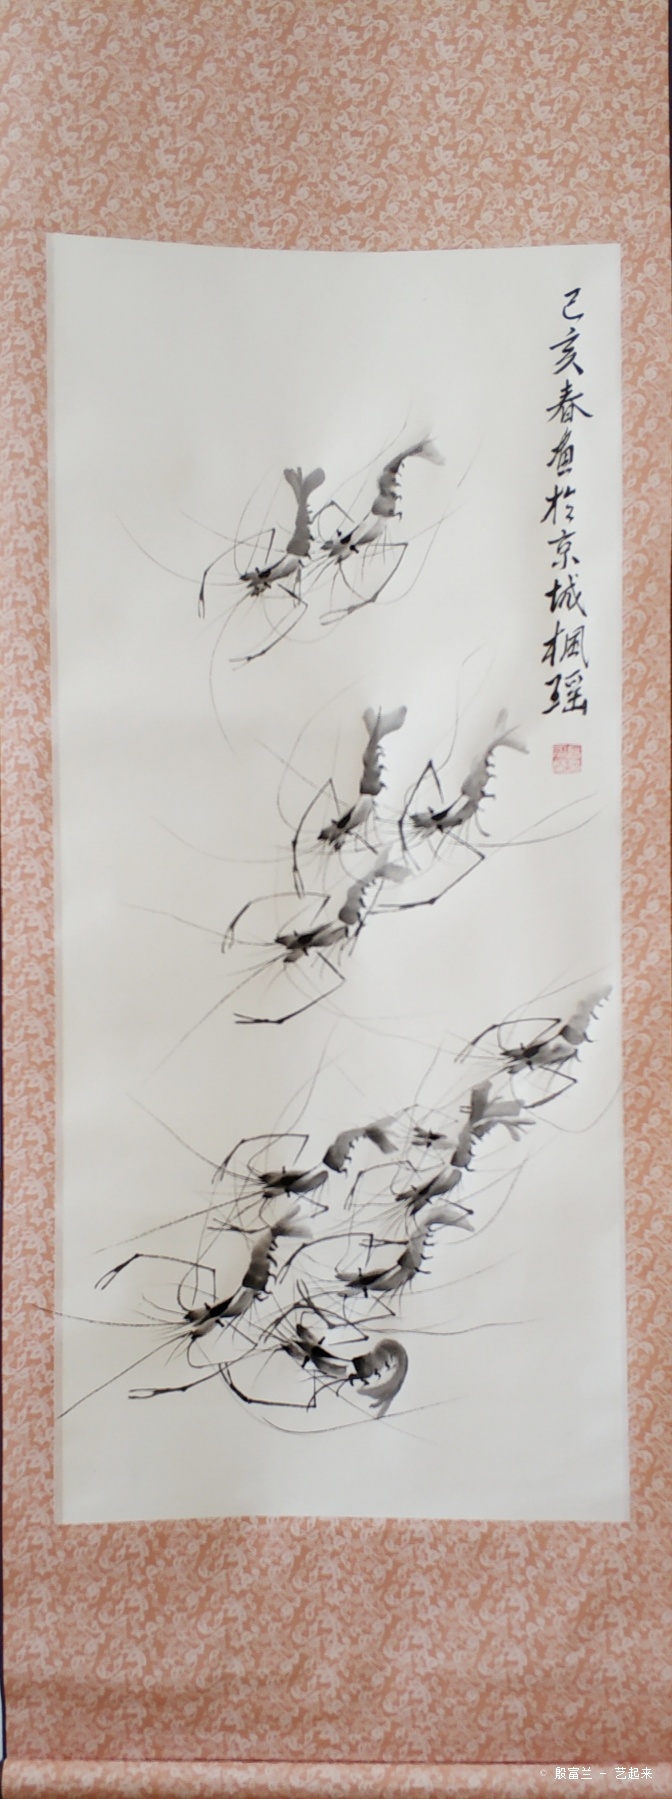 己亥春画於京城楓瑶
© 殷富兰 - 艺起来